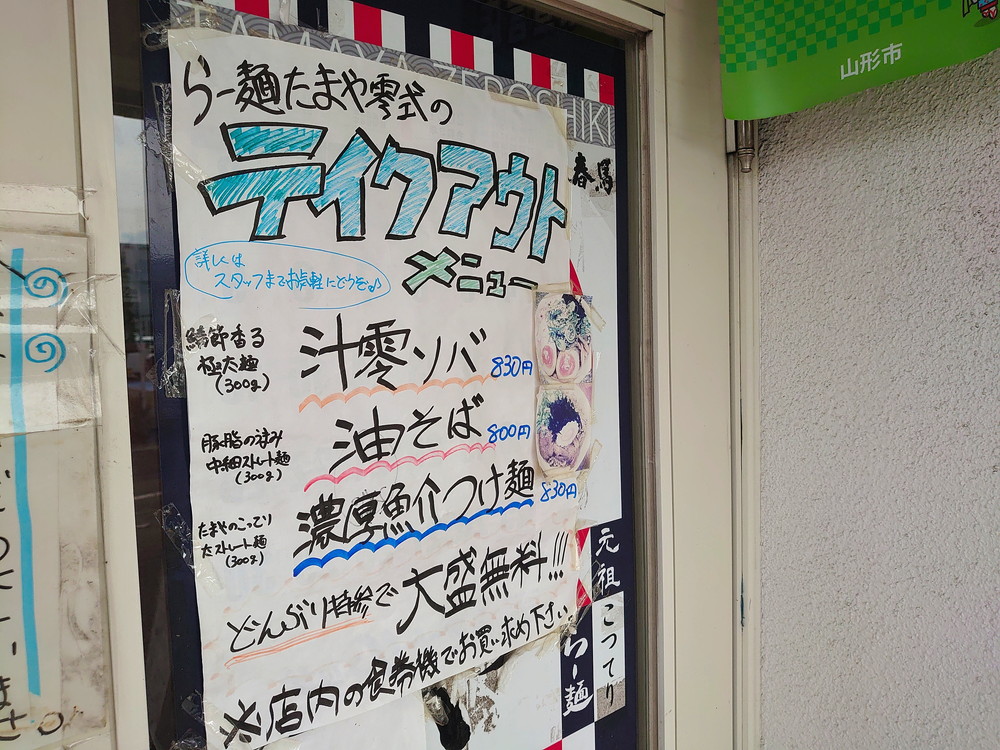 山形市
TAMAYA ZEROSHIKI
らー麺たまや零式の
テイクアウト
メニュー
詳しくは
スタッフまでお気軽にどうぞ♪
鯖節香る
極太麺
(300g)
汁零ソバ 830円
豚脂の凄み
中細ストレート麺
(300g)
油そば 800円
たまやのこってり
太ストレート麺
(300g)
濃厚魚介つけ麺 830円
どんぶり持参で 大盛無料!!!
※店内の食券機でお買い求め下さい。
元祖
こってり
らー麺